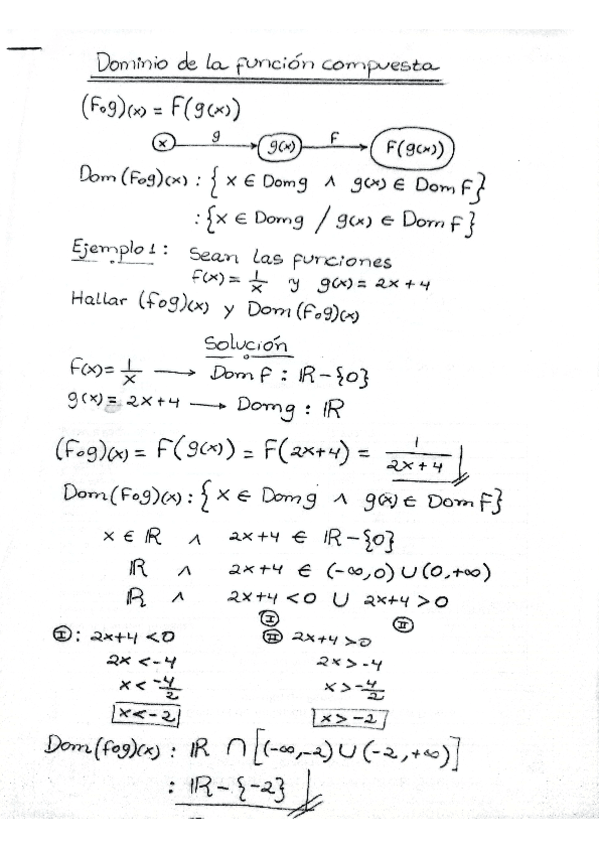 Dominio de la función compuesta
(F∘g)(x) = F(g(x))
x g g(x) F F(g(x))
Dom(F∘g)(x) : { x ∈ Domg ∧ g(x) ∈ Dom F}
: {x ∈ Domg / g(x) ∈ Dom F}
Ejemplo 1: Sean las funciones
F(x) = 1/x y g(x) = 2x + 4
Hallar (fog)(x) y Dom(F∘g)(x)
Solución
F(x) = 1/x → Dom F : ℝ - {0}
g(x) = 2x + 4 → Domg : ℝ
(F∘g)(x) = F(g(x)) = F(2x+4) = 1/(2x + 4)
Dom(F∘g)(x) : { x ∈ Domg ∧ g(x) ∈ Dom F}
x ∈ ℝ ∧ 2x+4 ∈ ℝ - {0}
ℝ ∧ 2x+4 ∈ (-∞,0) ∪ (0,+∞)
ℝ ∧ 2x+4 < 0 ∪ 2x+4 > 0
I II
I : 2x+4 < 0 II 2x+4 > 0
2x < -4 2x > -4
x < -4/2 x > -4/2
x < -2 x > -2
Dom(fog)(x) : ℝ ∩ [(-∞,-2) ∪ (-2,+∞)]
: ℝ - {-2}